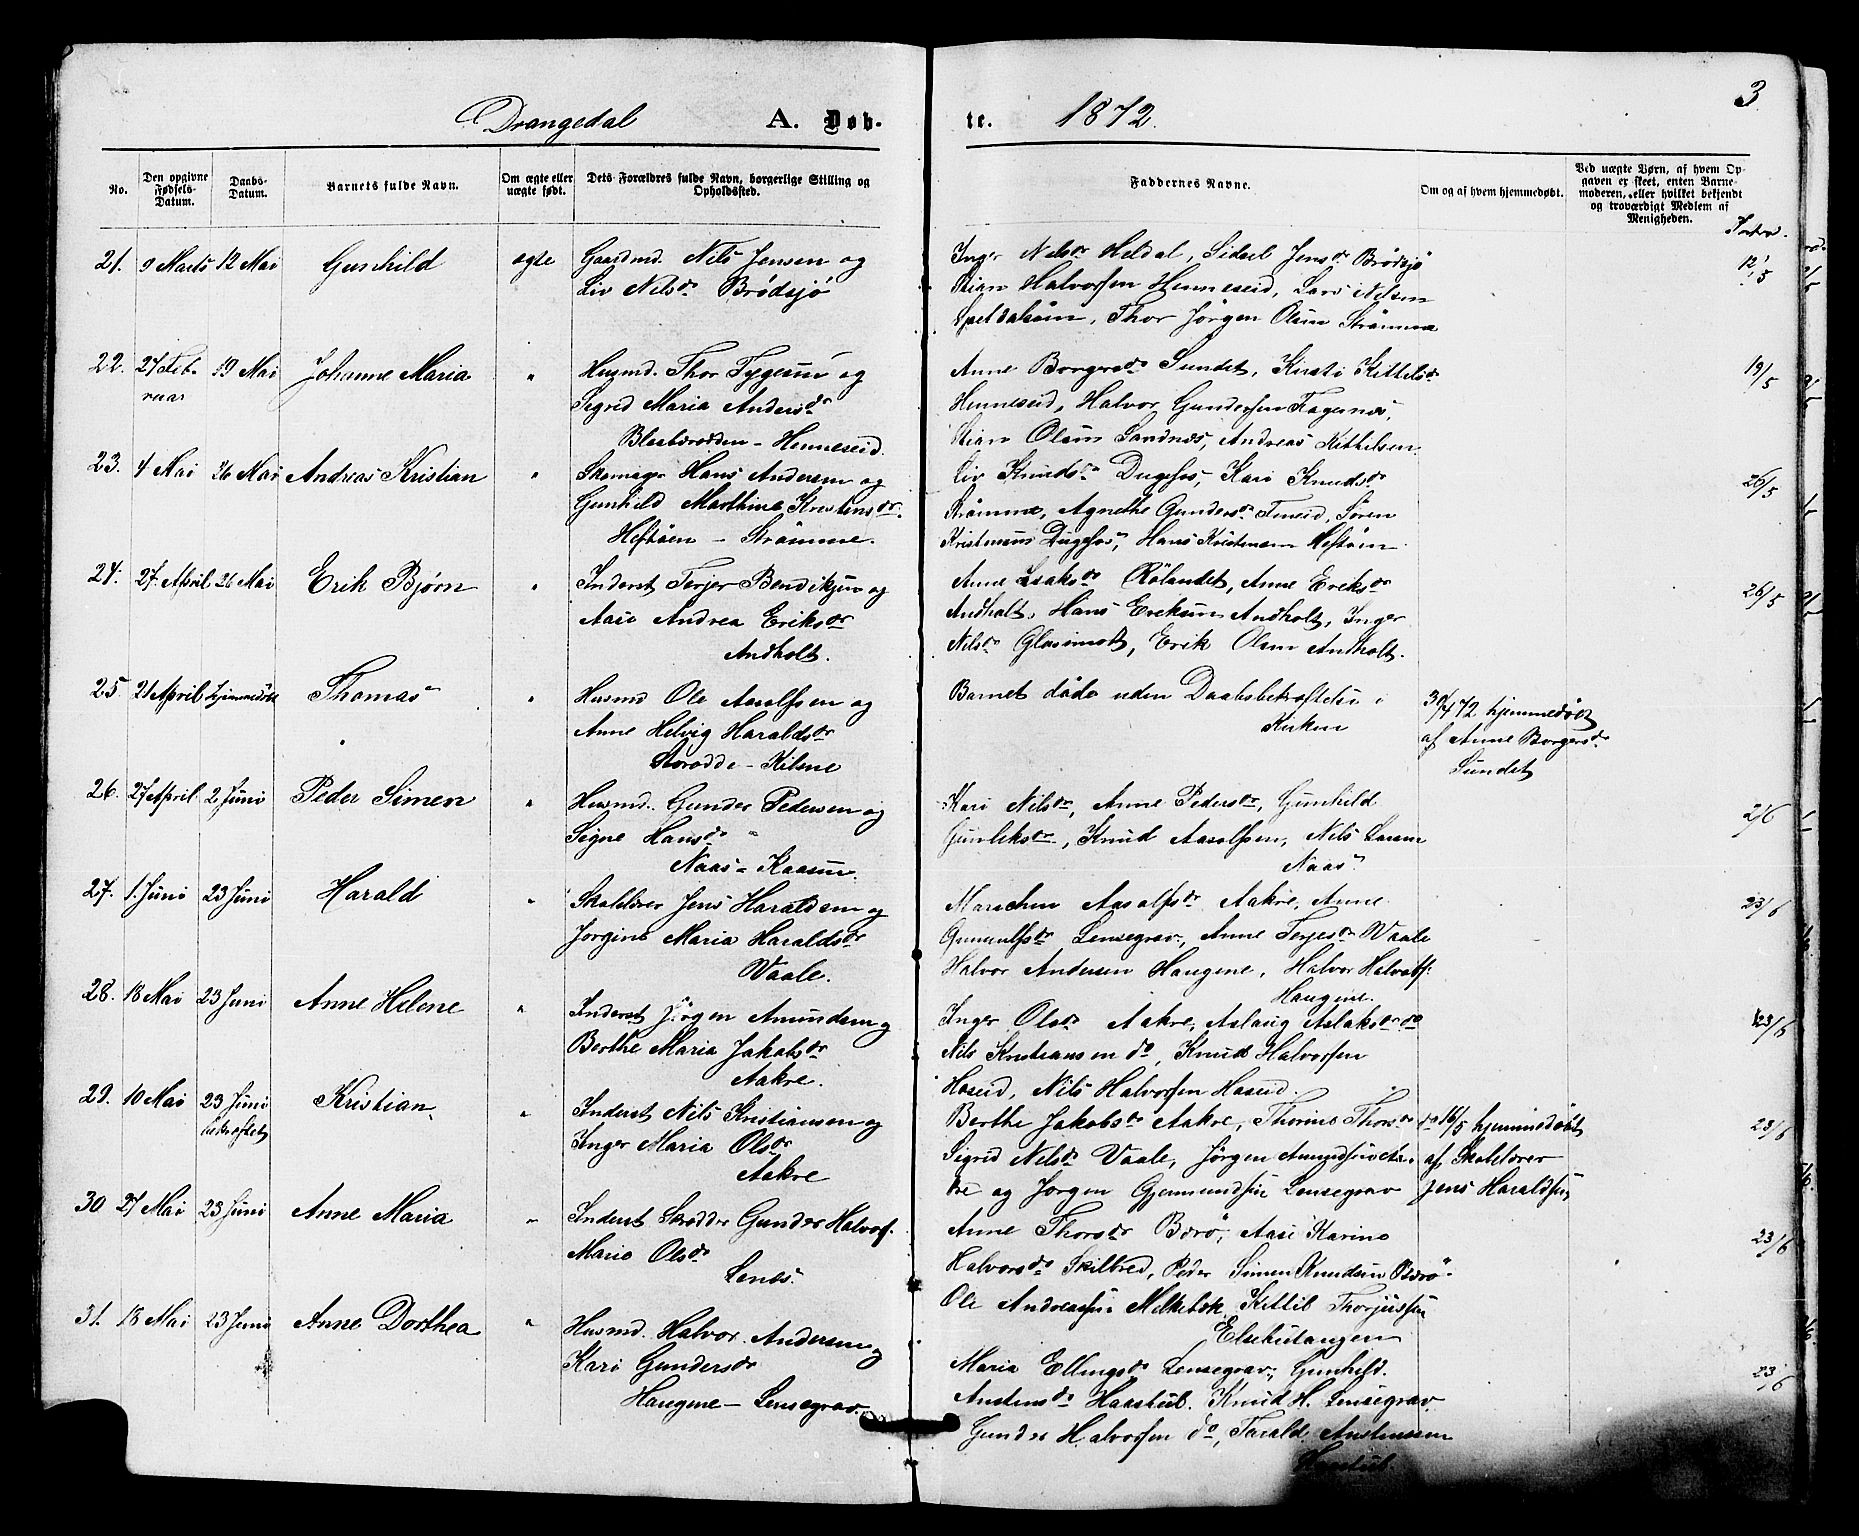 Drangedal A. Døb-
te. 1872. 3
No.
Den opgivne Fødsels-Datum.
Daabs-Datum.
Barnets fulde Navn.
Om ægte eller uægte født.
Dets Forældres fulde Navn, borgerlige Stilling og Opholdssted.
Faddernes Navne.
Om og af hvem hjemmedøbt.
Ved uægte Børn, af hvem Opgaven er skeet, enten Barnemoderen, eller hvilket bekjendt og troværdigt Medlem af Menigheden.
21. 9 Marts 12 Mai Gunhild ægte Gaardmd. Nils Jensen og
Liv Nilsdr Brødsjø
Inger Nilsdr Heldal, Sidsel Jensdr Brødsjø
Stian Halvorsen Henneseid, Lars Nilsen
Thor Jørgen Olsen Strømme
12/5
22. 27 Feb- 19 Mai Johanne Maria " Husmd. Thor Tygesen og
ruar Sigrid Maria Andersdr
Blaabærodden - Henneseid.
Anne Borgersdr Sundet, Kirsti Kittilsdr
Henneseid, Halvor Gundersen Fagernes,
Stian Olsen Sandnæs, Andreas Kittilsen
19/5
23. 4 Mai 26 Mai Andreas Kristian " Skomager Hans Andersen og
Gunhild Marthine Kristensdr.
Heftøen - Strømme.
Liv Knudsdr Dugefos, Kari Knudsdr
Strømme, Agnethe Gundersdr Søren
Kristensen Dugefos, Hans Kristensen Heftøen
26/5
24. 27. April 26 Mai Erik Bjørn " Inderst Terjer Bendiksen og
Aase Andrea Eriksdr
Andholt.
Anne Isaksdr Rølandet, Anne Ereksdr
Andholt, Hans Ereksen Andholt, Inger
Nilsdr Glasimott, Erik Olsen Andholt.
26/5
25 21 April hjemmedøbt Thomas " Husmd Ole Aasolfsen og
Anne Helvig Haraldsdr
Storodde - Kilene
Barnet døde uden Daabsbekræftelse i
Kirken
30/4 72 hjemmedøbt
af Anne Borgersdr
Sundet
26. 27 April 2 Juni Peder Simen " Husmd. Gunder Pedersen og
Signe Hansdr
Naas - Kaasen.
Kari Nilsdr, Anne Pedersdr, Gunhild
Gunleksdr, Knud Aasolfsen, Nils Larsen
Naas
2/6
27. 1. Juni 23 Juni Harald " Skolelærer Jens Haraldsen og
Jorgine Maria Haraldsdr
Vaale.
Maschen Aasolfsdr Aakre, Anne
Gunnulfsdr Lensegrav, Anne Terjesdr Vaale
Halvor Andersen Haugene, Halvor Halvorsf.
Haugene.
23/6
28. 18 Mai 23 Juni Anne Helene " Inderst Jørgen Amundsen og
Berthe Maria Jakobsdr
Aakre.
Inger Olsdr Aakre, Aslaug Aslaksdr do
Nils Kristiansen do, Knud Halvorsen
Haseid, Nils Halvorsen Haseid.
23/6
29. 10 Mai 23 Juni Kristian " Inderst Nils Kristiansen og
bekræftet Inger Maria Olsdr
Aakre
Berthe Jakobsdr Aakre, Thorine Thorsdr do
Sigrid Nilsdr Vaale, Jørgen Amundsen Aa-
kre og Jørgen Gjermundsen Lensegrav
16/5 hjemmedøbt
af Skolelærer
Jens Haraldsen
23/6
30 27 Mai 23 Juni Anne Maria " Inderst Skrædder Gunder Halvorsf.
Marie Olsdr
Lenes.
Anne Thorsdr Bærø, Aase Karine
Halvorsdr Skilbred, Peder Simen Knudsen Bærø
Ole Andreassen Kittil Thorjussen
23/6
31. 18 Mai 23 Juni Anne Dorthea " Husmd. Halvor Andersen og
Kari Gundersdr
Haugene - Lensegrav.
Maria Ellingsdr Lensegrav, Gunhild
Austensdr Haastul. Knud H. Lensegrav
Gunder Halvorsen do, Tarald Austensen
Haastul.
23/6